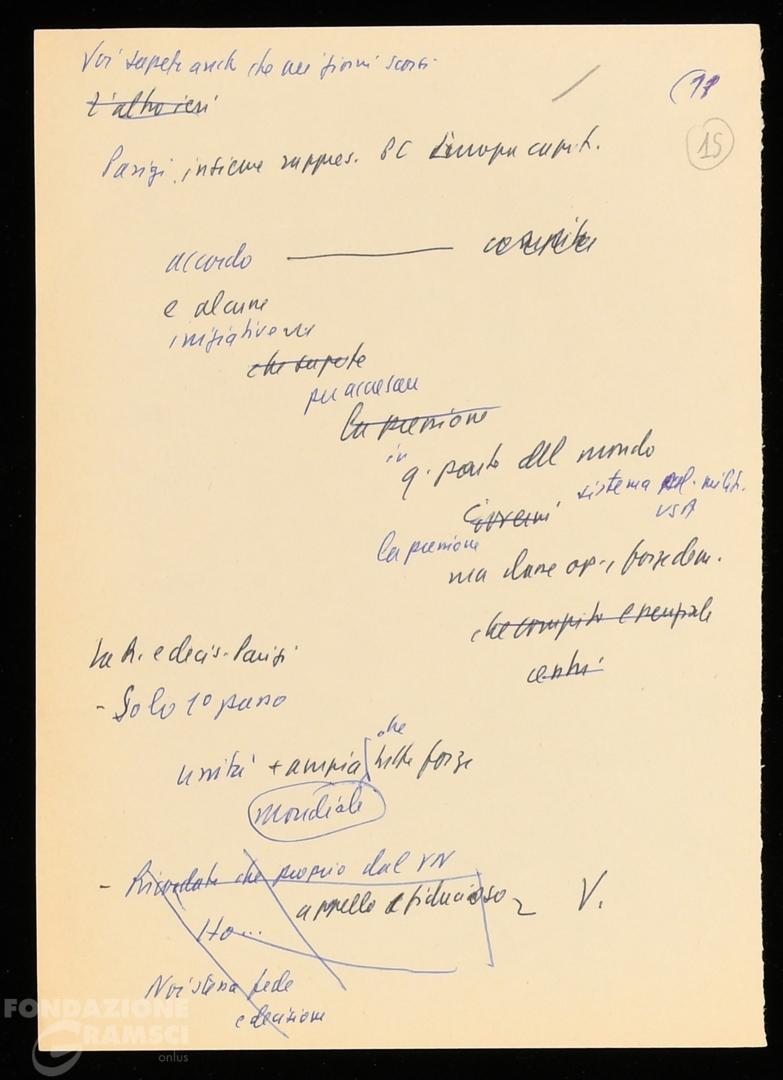 Voi sapete anche che nei giorni scorsi
L'altro ieri
(11
15
Parigi, insieme rappres. PC Europa capit.
accordo —
e alcune
iniziative
che sapete
per accrescere
la pressione
in
q. parte del mondo
Governi
sistema pol. milit.
USA
la pressione
ma classe op. e forze dem.
che compito essenziale
centri
La R. e decis. Parigi
- Solo 1º passo
unità + ampia tutte forze
che
mondiale
- Ricordate che proprio dal VN
appello fiducioso
V.
Ho...
Noi stessa fede
e decisione
FONDAZIONE
GRAMSCI
onlus